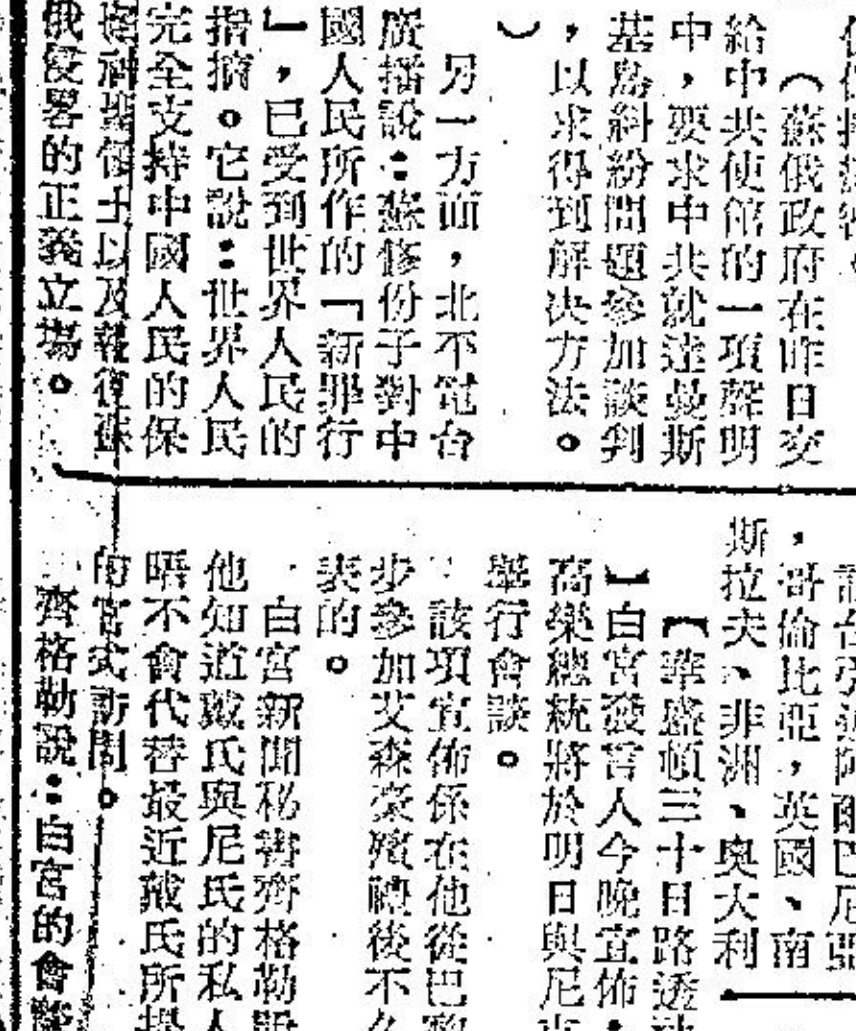 （蘇俄政府在昨日交
給中共使館的一項聲明
中，要求中共就達曼斯
基島糾紛問題參加談判
，以求得到解決方法。
）
另一方面，北平電台
廣播說：蘇修份子對中
國人民所作的「新罪行
」，已受到世界人民的
指摘。它說：世界人民
完全支持中國人民的保
衛士以及報復蘇
俄侵畧的正義立場。
，哥倫比亞，英國、南
斯拉夫、非洲、奧大利
【華盛頓三十日路透社
】白宮發言人今晚宣佈：
高樂總統將於明日與尼克
舉行會談。
該項宣佈係在他從巴黎
步參加艾森豪殯禮後不久
表的。
白宮新聞秘書齊格勒說
他知道戴氏與尼氏的私人
晤不會代替最近戴氏所提
的官式訪問。
齊格勒說：白宮的會談